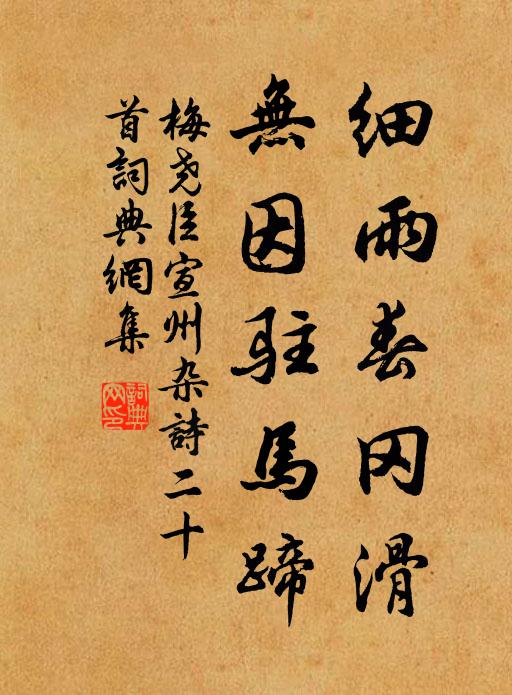 細雨春冈滑
無因駐馬蹄
梅尧臣宣州杂詩二十
首詞典網集
詞典
网印